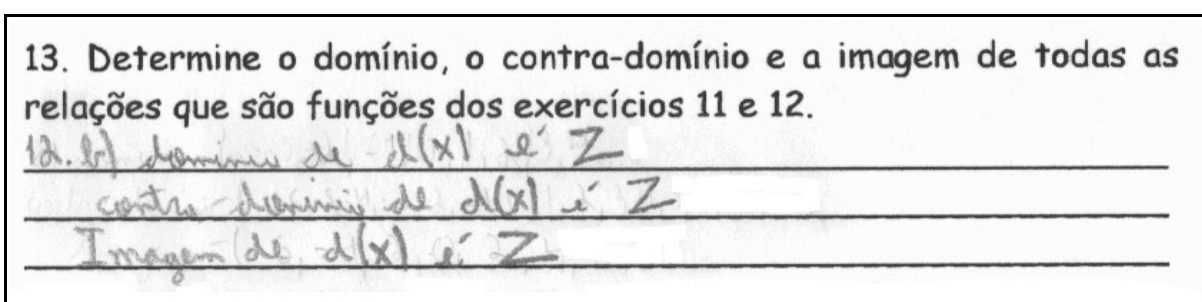 13. Determine o domínio, o contra-domínio e a imagem de todas as
relações que são funções dos exercícios 11 e 12.
12. b) domínio de d(x) é Z
contra-domínio de d(x) é Z
Imagem de d(x) é Z